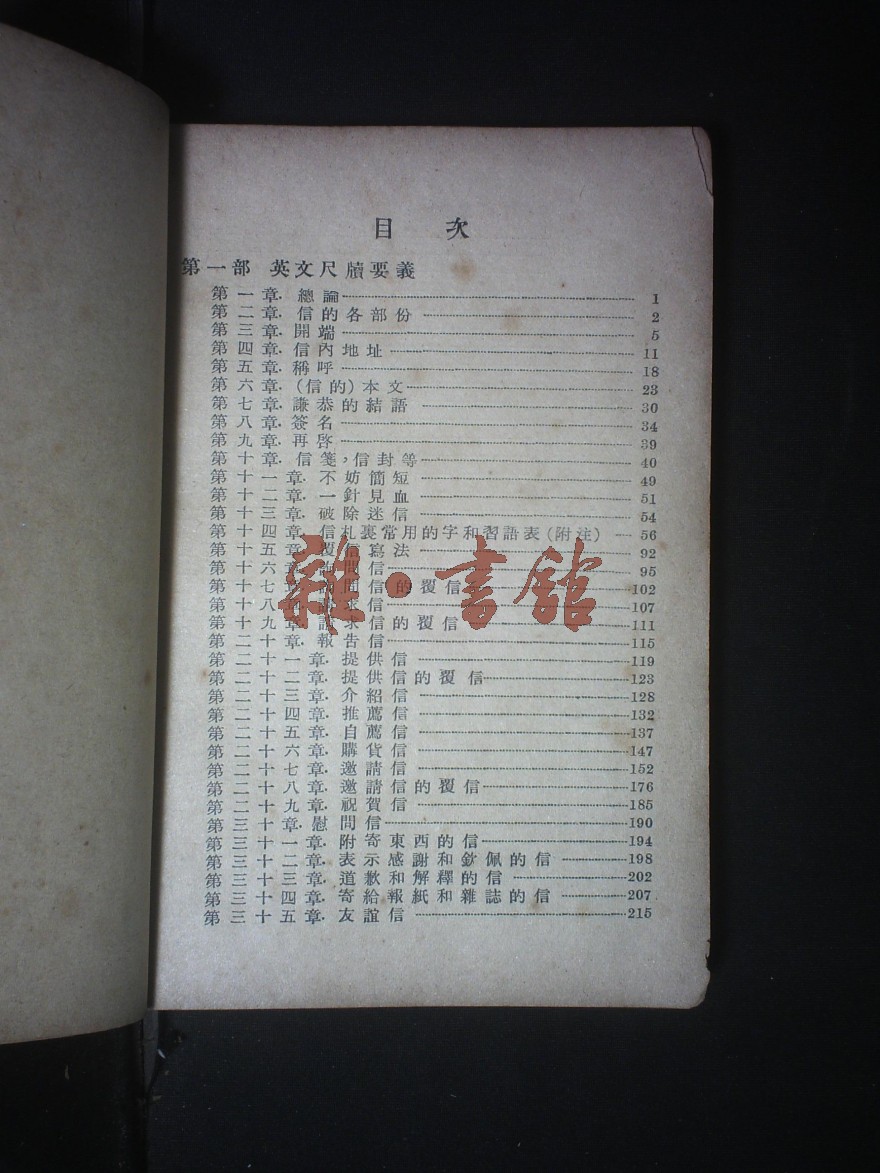 目次
第一部 英文尺牘要義
第一章. 總論 1
第二章. 信的各部份 2
第三章. 開端 5
第四章. 信內地址 11
第五章. 稱呼 18
第六章. (信的)本文 23
第七章. 謙恭的結語 30
第八章. 簽名 34
第九章. 再啓 39
第十章. 信箋,信封等 40
第十一章. 不妨簡短 49
第十二章. 一針見血 51
第十三章. 破除迷信 54
第十四章. 信札裏常用的字和習語表(附注) 56
第十五章. 覆信寫法 92
第十六章. 詢問信 95
第十七章. 詢問信的覆信 102
第十八章. 請求信 107
第十九章. 請求信的覆信 111
第二十章. 報告信 115
第二十一章. 提供信 119
第二十二章. 提供信的覆信 123
第二十三章. 介紹信 128
第二十四章. 推薦信 132
第二十五章. 自薦信 137
第二十六章. 購貨信 147
第二十七章. 邀請信 152
第二十八章. 邀請信的覆信 176
第二十九章. 祝賀信 185
第三十章. 慰問信 190
第三十一章. 附寄東西的信 194
第三十二章. 表示感謝和欽佩的信 198
第三十三章. 道歉和解釋的信 202
第三十四章. 寄給報紙和雜誌的信 207
第三十五章. 友誼信 215
雜·書館